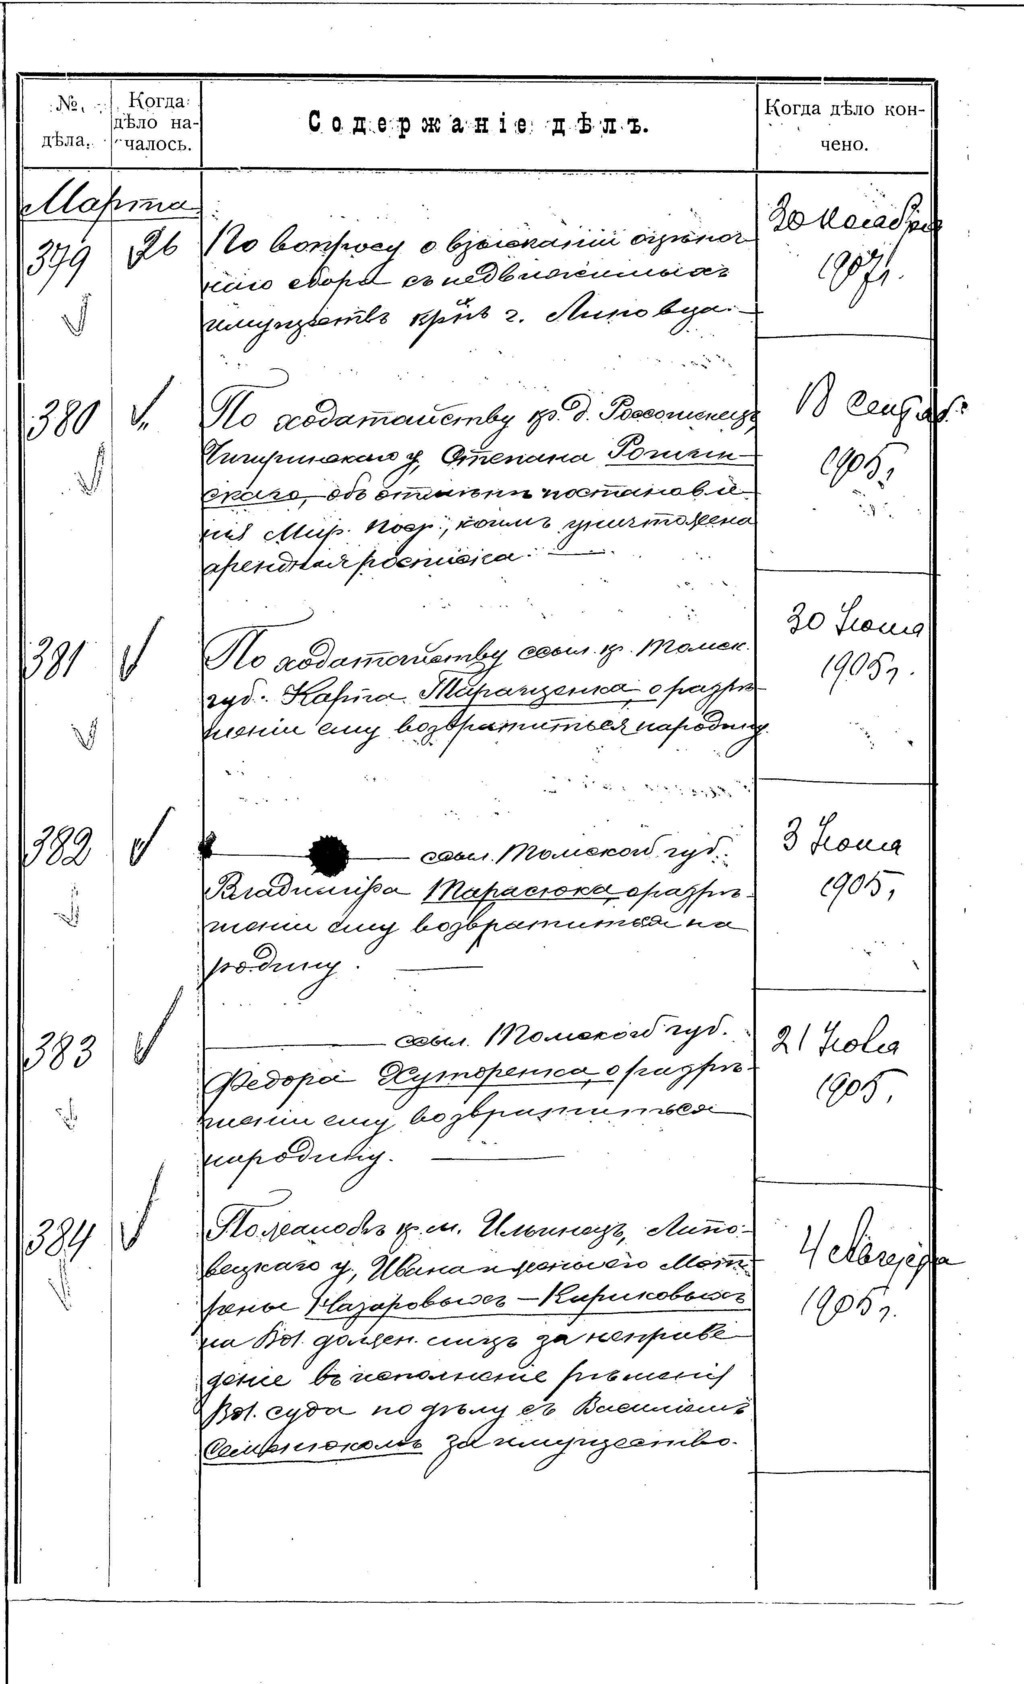 № дѣла.
Когда дѣло на-
чалось.
Содержаніе дѣлъ.
Когда дѣло кон-
чено.
Марта
379
26
По вопросу о взысканіи оцѣноч-
наго сбора съ недвижимыхъ
имуществъ кр-нъ г. Липовца.
30 Ноября
1907 г.
380
По ходатайству кр. д.
Чигиринскаго у. Степана
скаго, объ отмѣнѣ постановле-
нія Мир. Поср., коимъ уничтожена
арендная росписка.
1905 г.
381
По ходатайству ссыл. кр. Томск.
губ. Карпа Таращенка о разрѣ-
шеніи ему возвратиться на родину
30 Іюня
1905 г.
382
ссыл. Томской губ.
Владиміра Тарасюка, о разрѣ-
шеніи ему возвратиться на
родину.
3 Іюня
1905 г.
383
ссыл. Томской губ.
Федора Хуторенка, о разрѣ-
шеніи ему возвратиться
на родину.
21 Іюля
1905 г.
384
По жалобѣ кр. м. Ильинецъ, Липо-
вецкаго у., Ивана и жены его Мот-
рены Назаровыхъ-Кириковыхъ
на Вол. должн. лицъ за неприве-
деніе въ исполненіе рѣшенія
Вол. суда по дѣлу съ Василіемъ
Семенюкомъ за имущество.
4
1905 г.